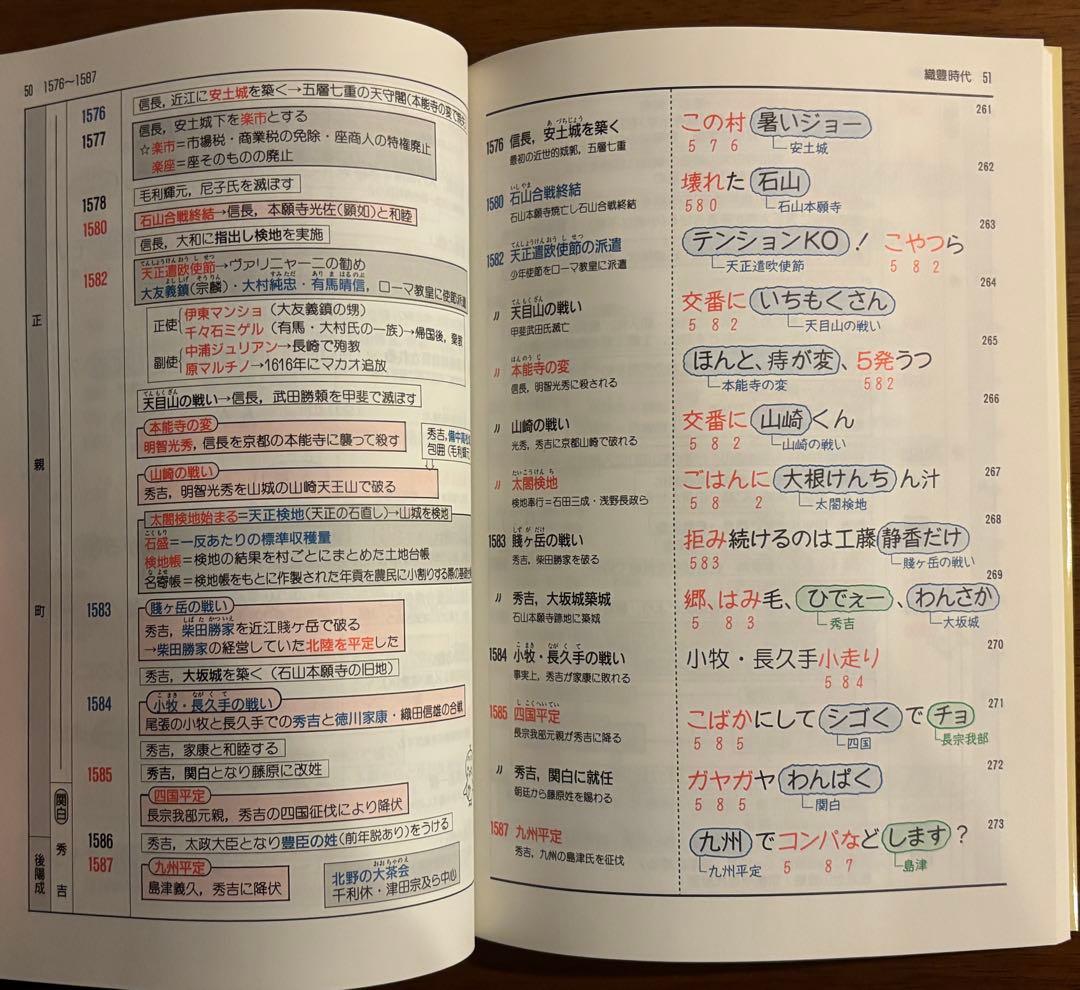 50 1576～1587
1576
信長，近江に安土城を築く→五層七重の天守閣(本能寺の変で
1577
信長，安土城下を楽市とする
☆楽市＝市場税・商業税の免除・座商人の特権廃止
楽座＝座そのものの廃止
1578
毛利輝元，尼子氏を滅ぼす
1580
石山合戦終結→信長，本願寺光佐(顕如)と和睦
信長，大和に指出し検地を実施
1582
てんしょうけんおうしせつ
天正遣欧使節→ヴァリニャーニの勧め
よししげ そうりん すみただ ありまはるのぶ
大友義鎮(宗麟)・大村純忠・有馬晴信，ローマ教皇に使節派遣
正使
伊東マンショ(大友義鎮の甥)
千々石ミゲル(有馬・大村氏の一族)→帰国後，棄教
副使
中浦ジュリアン→長崎で殉教
原マルチノ→1616年にマカオ追放
てんもくざん
天目山の戦い→信長，武田勝頼を甲斐で滅ぼす
本能寺の変
明智光秀，信長を京都の本能寺に襲って殺す
秀吉，備中高松
包囲(毛利輝元
山崎の戦い
秀吉，明智光秀を山城の山崎天王山で破る
太閤検地始まる＝天正検地(天正の石直し)→山城を検地
こくもり
石盛＝一反あたりの標準収穫量
検地帳＝検地の結果を村ごとにまとめた土地台帳
なよせ
名寄帳＝検地帳をもとに作製された年貢を農民に小割りする際の基礎
1583
賤ヶ岳の戦い
しばたかついえ
秀吉，柴田勝家を近江賤ヶ岳で破る
→柴田勝家の経営していた北陸を平定した
秀吉，大坂城を築く(石山本願寺の旧地)
1584
こまき ながくて
小牧・長久手の戦い
尾張の小牧と長久手での秀吉と徳川家康・織田信雄の合戦
秀吉，家康と和睦する
1585
秀吉，関白となり藤原に改姓
四国平定
長宗我部元親，秀吉の四国征伐により降伏
1586
秀吉，太政大臣となり豊臣の姓(前年説あり)をうける
1587
九州平定
島津義久，秀吉に降伏
おおちゃのえ
北野の大茶会
千利休・津田宗及ら中心
正
親
町
後陽成
関白
秀
吉
織豊時代 51
261
あづちじょう
1576 信長，安土城を築く
最初の近世的城郭，五層七重
この村 暑いジョー
5 7 6
安土城
262
いしやま
1580 石山合戦終結
石山本願寺焼亡し石山合戦終結
壊れた 石山
5 8 0
石山本願寺
263
てんしょうけんおうしせつ
1582 天正遣欧使節の派遣
少年使節をローマ教皇に派遣
テンションKO！ こやつら
5 8 2
天正遣欧使節
264
てんもくざん
〃 天目山の戦い
甲斐武田氏滅亡
交番に いちもくさん
5 8 2
天目山の戦い
265
ほんのうじ
〃 本能寺の変
信長，明智光秀に殺される
ほんと、痔が変、5発うつ
5 8 2
本能寺の変
266
〃 山崎の戦い
光秀，秀吉に京都山崎で破れる
交番に 山崎くん
5 8 2
山崎の戦い
267
たいこうけんち
〃 太閤検地
検地奉行＝石田三成・浅野長政ら
ごはんに 大根けんちん汁
5 8 2
太閤検地
268
しずがだけ
1583 賤ヶ岳の戦い
秀吉，柴田勝家を破る
拒み続けるのは工藤静香だけ
5 8 3
賤ヶ岳の戦い
269
〃 秀吉，大坂城築城
石山本願寺跡地に築城
郷、はみ毛、ひでぇー、わんさか
5 8 3
秀吉
大坂城
270
こまき ながくて
1584 小牧・長久手の戦い
事実上，秀吉が家康に敗れる
小牧・長久手小走り
5 8 4
271
しこくへいてい
1585 四国平定
長宗我部元親が秀吉に降る
こばかにして シゴくで チョ
5 8 5
四国
長宗我部
272
〃 秀吉，関白に就任
朝廷から藤原姓を賜わる
ガヤガヤ わんぱく
5 8 5
関白
273
1587 九州平定
秀吉，九州の島津氏を征伐
九州でコンパなどします？
5 8 7
九州平定
島津